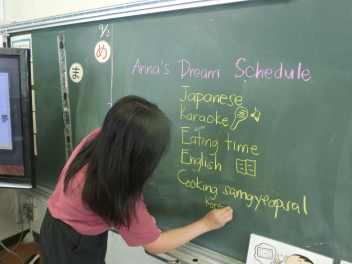 め
ま
Anna's Dream Schedule
Japanese
Karaoke
Eating time
English
Cooking samgyeopsal